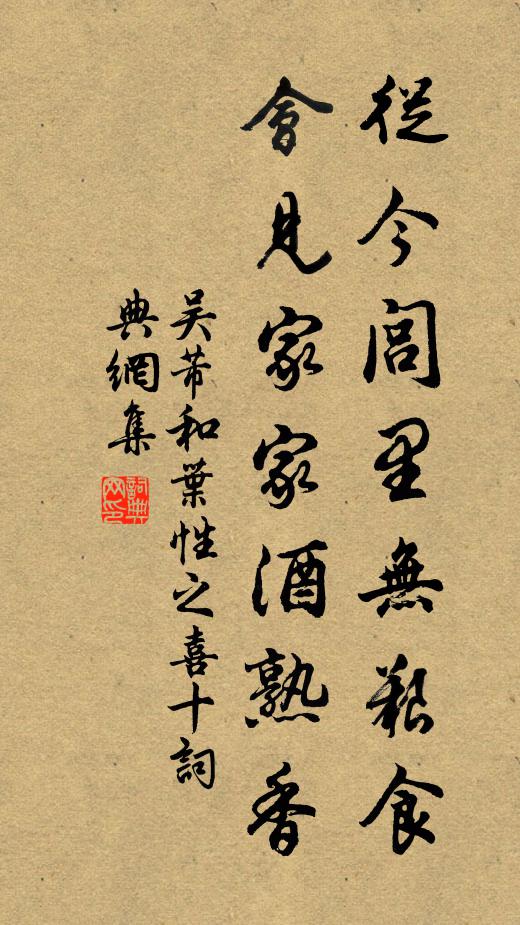 從今閭里無艱食
會見家家酒熟香
吳芾和葉性之喜十詞
典網集
詞典網印